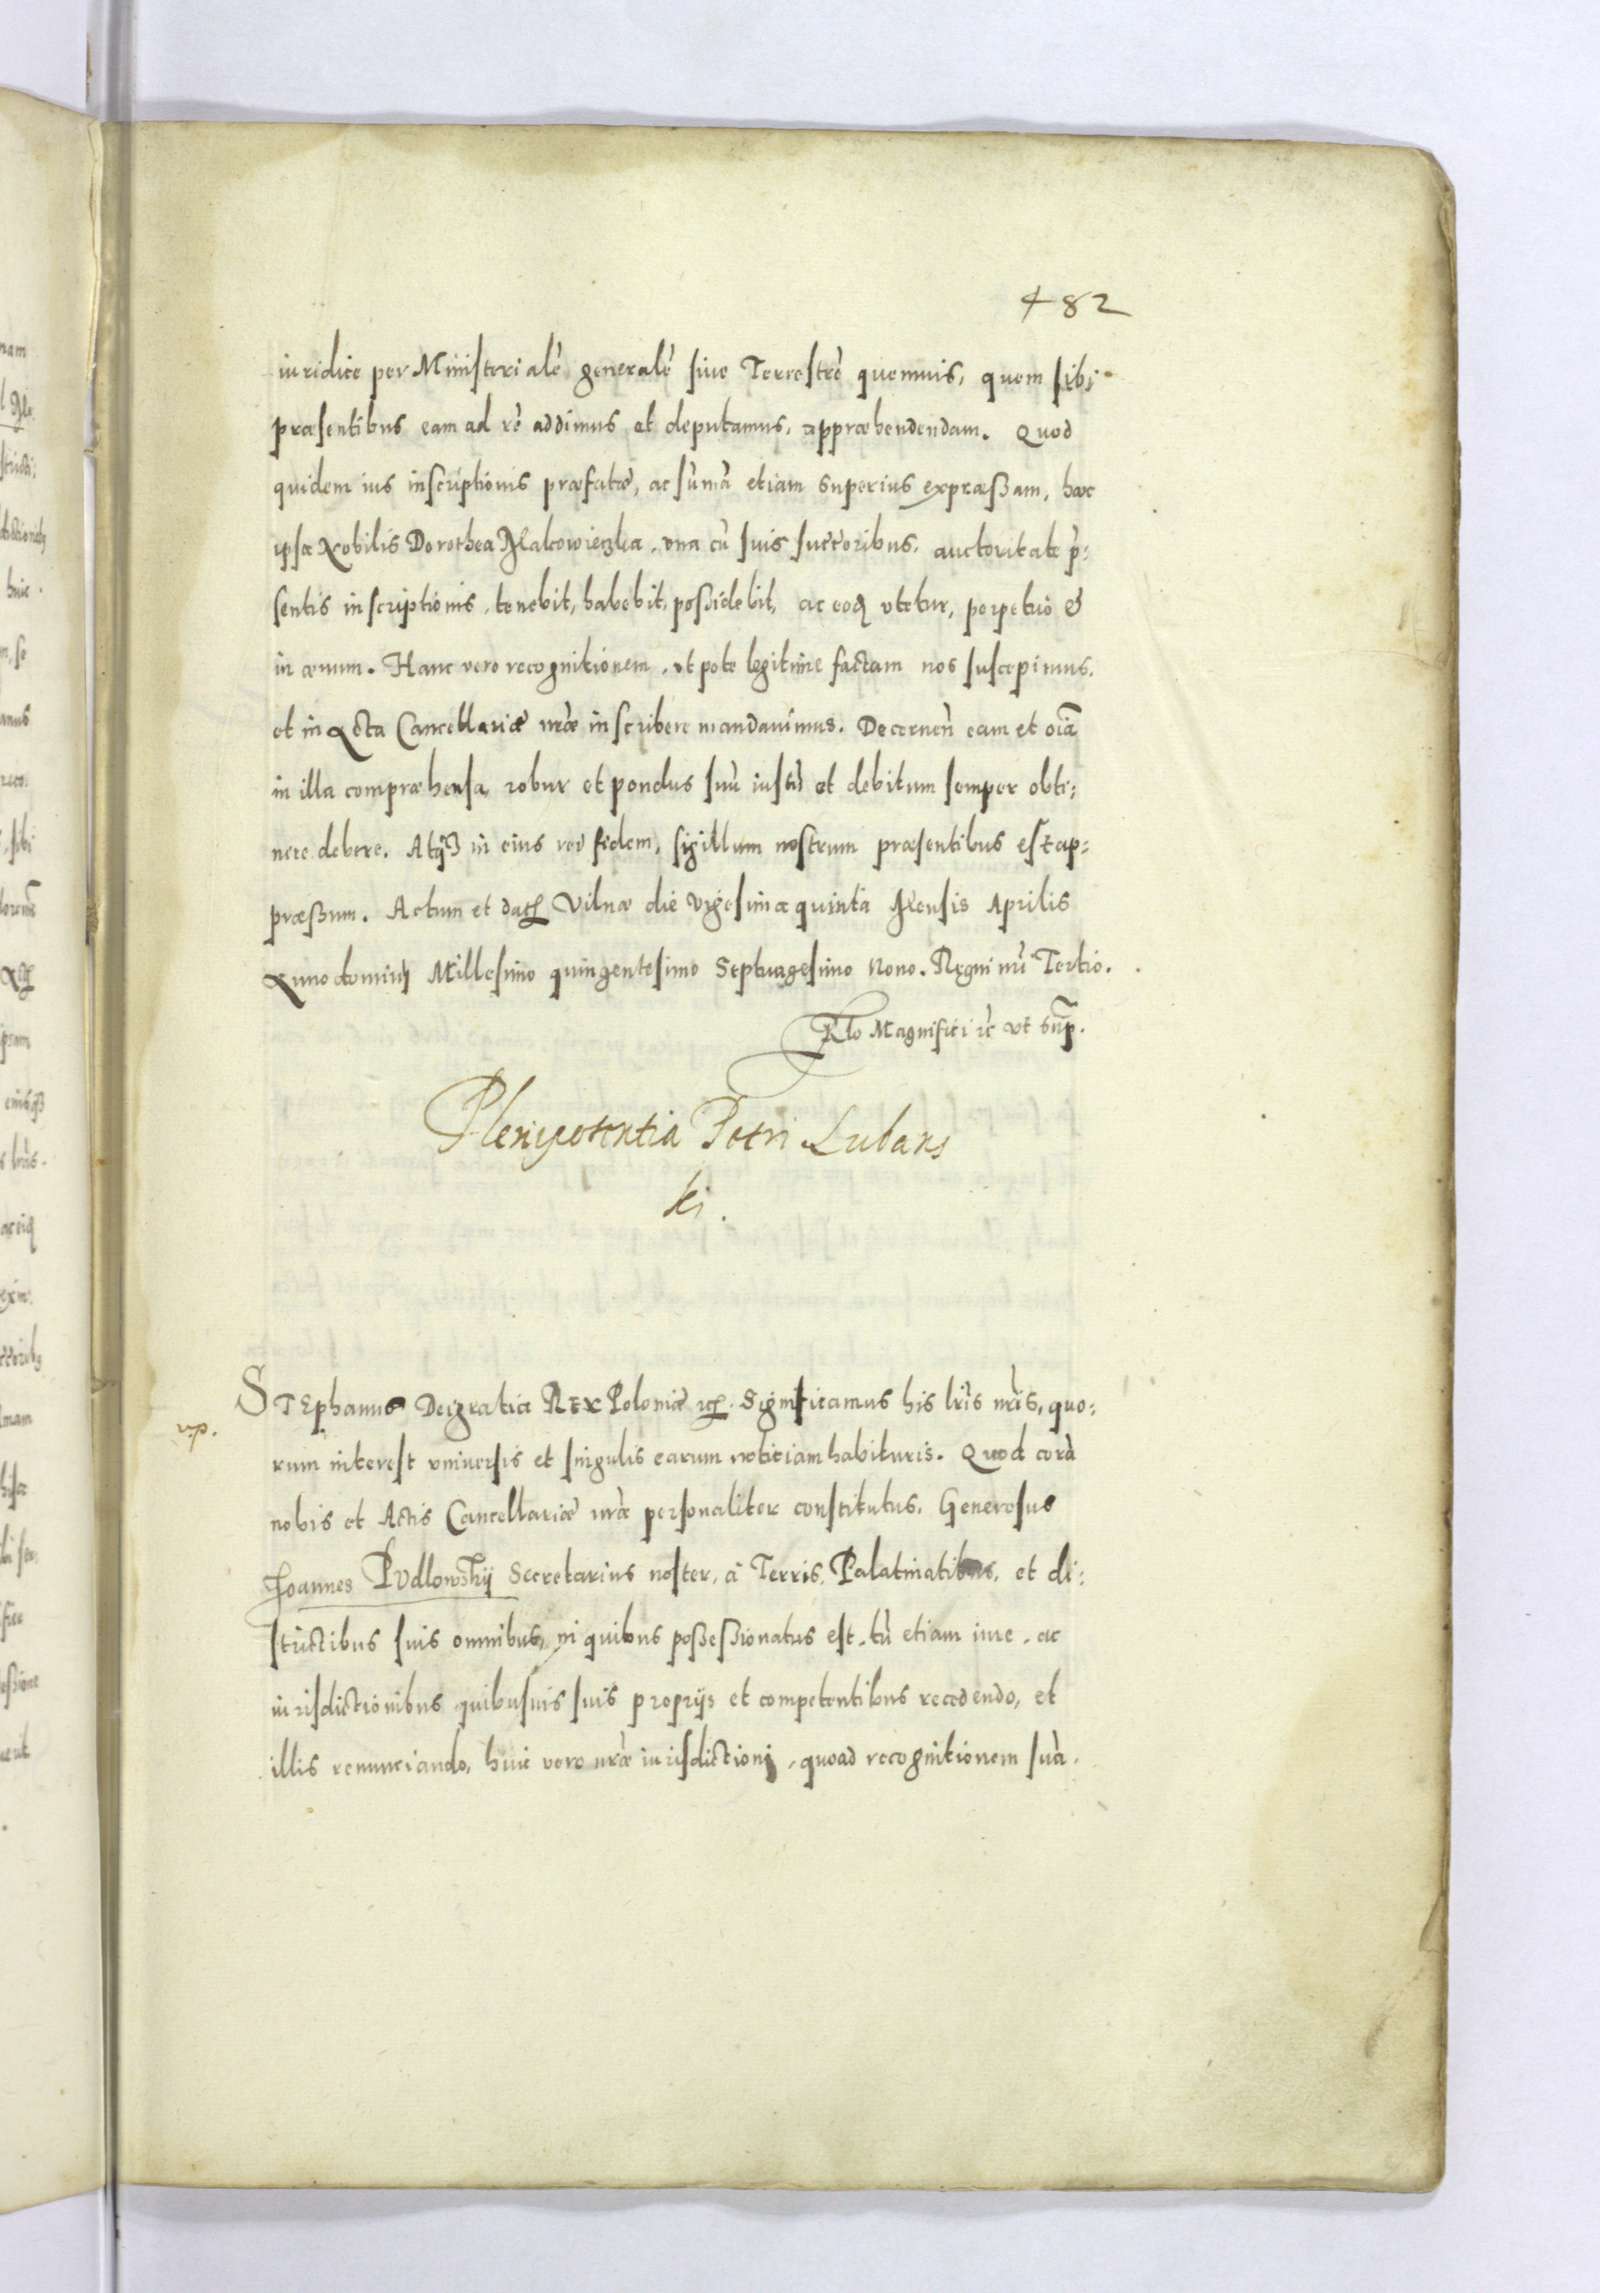 482
iuridice per Ministerialē generalē siue Terrestrē quemuis, quem sibi
præsentibus eam ad rē addimus et deputamus, appræhendendam. Quod
quidem ius inscriptionis præfatæ, ac sūmā etiam superius expræssam, hæc
ipsa Nobilis Dorothea Makowieczka, vna cū suis succtoribus, auctoritate p̄-
sentis inscriptionis, tenebit, habebit, possidebit, ac eoq vtetur, perpetuo &
in æuum. Hanc vero recognitionem, vt pote legitime factam nos suscepimus,
et in Acta Cancellariæ nr̄æ inscribere mandauimus. Decernen̄ eam et oīa
in illa compræhensa, robur et pondus suū iustū et debitum semper obti-
nere debere. Atq3 in eius rei fidem, sigillum nostrum præsentibus est ap-
præssum. Actum et dat Vilnæ die Vigesima quinta Mensis Aprilis
Anno domini Millesimo quingentesimo Septuagesimo Nono. Regni nr̄i Tertio.
Rlo Magnifici rc̄ vt sup̄.
Plenipotentia Petri Lubans
ki.
Stephanus Dei gratia Rex Poloniæ etc. Significamus his lr̄is nr̄is, quo-
v.p.
rum interest vniuersis et singulis earum noticiam habituris. Quod corā
nobis et Actis Cancellariæ nr̄æ personaliter constitutus, Generosus
Joannes Pudlowskij Secretarius noster, à Terris, Palatinatibus, et di-
strictibus suis omnibus, in quibus possessionatus est, tū etiam iure, ac
iurisdictionibus quibusuis suis proprijs et competentibus recedendo, et
illis renunciando, huic vero nr̄æ iurisdictioni, quoad recognitionem suā.